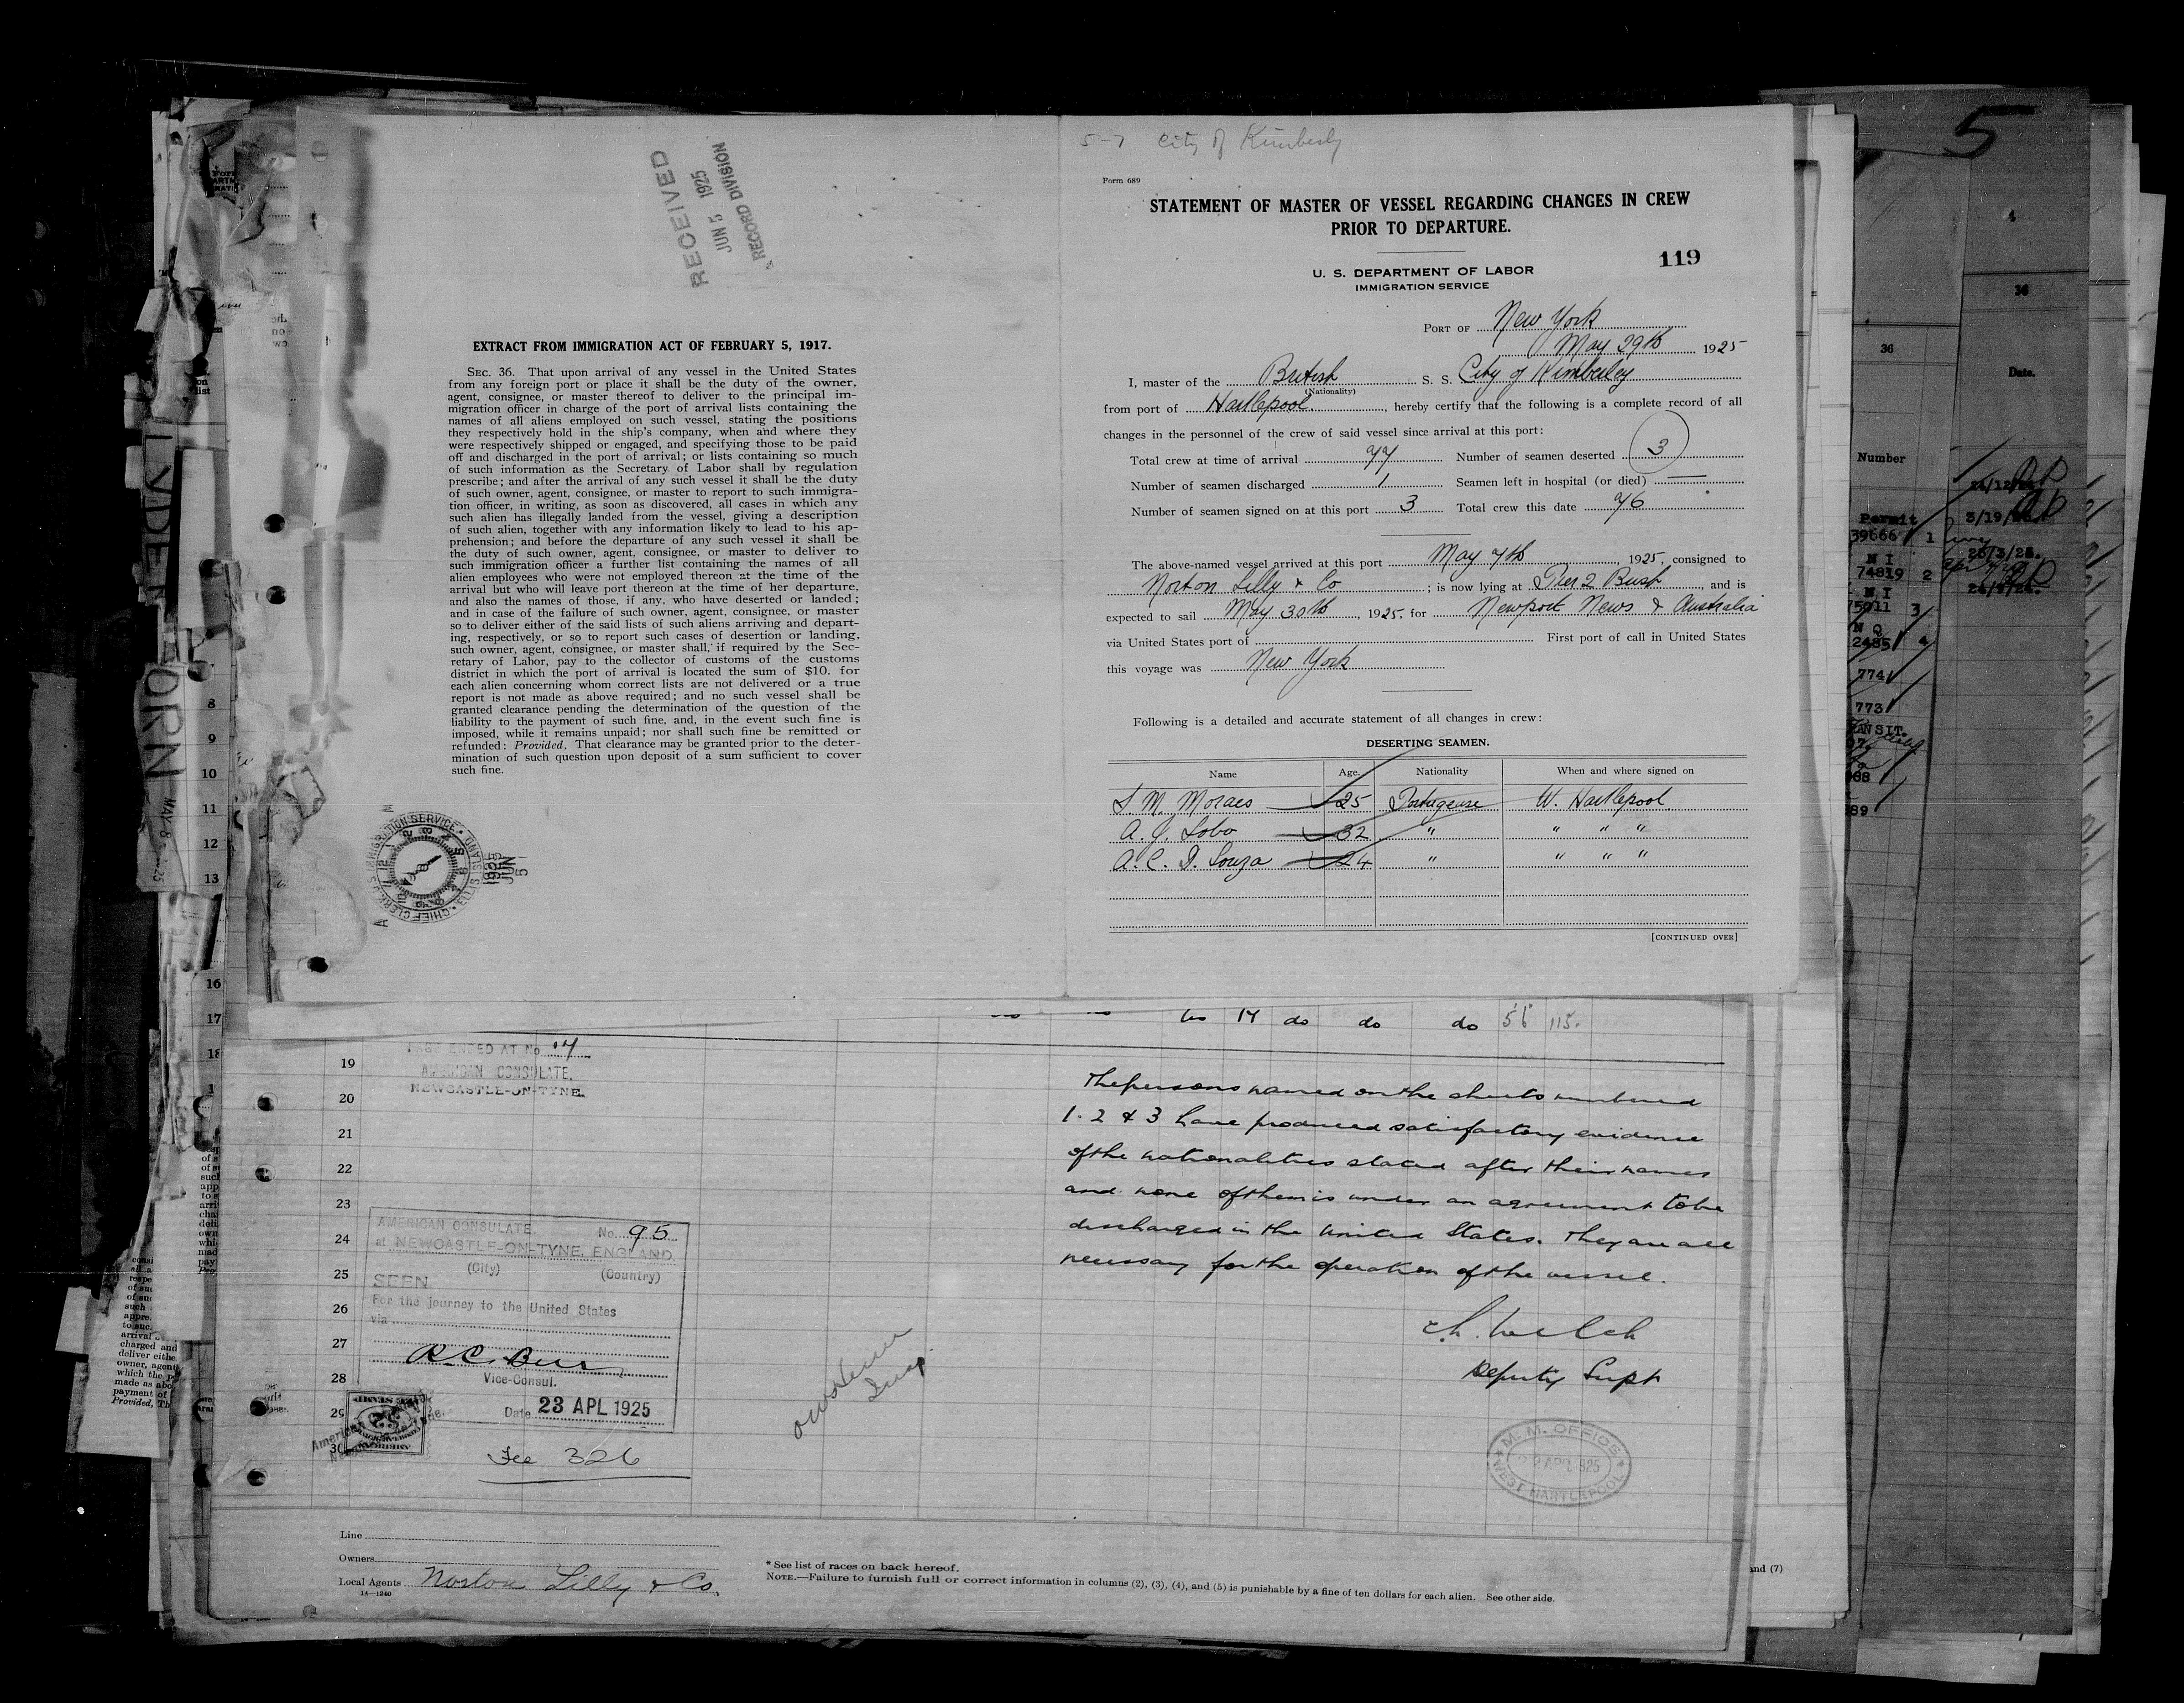 5-7 City of Kimberly
RECEIVED
JUN 5 1925
RECORD DIVISION
EXTRACT FROM IMMIGRATION ACT OF FEBRUARY 5, 1917.
SEC. 36. That upon arrival of any vessel in the United States
from any foreign port or place it shall be the duty of the owner,
agent, consignee, or master thereof to deliver to the principal im-
migration officer in charge of the port of arrival lists containing the
names of all aliens employed on such vessel, stating the positions
they respectively hold in the ship's company, when and where they
were respectively shipped or engaged, and specifying those to be paid
off and discharged in the port of arrival; or lists containing so much
of such information as the Secretary of Labor shall by regulation
prescribe; and after the arrival of any such vessel it shall be the duty
of such owner, agent, consignee, or master to report to such immigra-
tion officer, in writing, as soon as discovered, all cases in which any
such alien has illegally landed from the vessel, giving a description
of such alien, together with any information likely to lead to his ap-
prehension; and before the departure of any such vessel it shall be
the duty of such owner, agent, consignee, or master to deliver to
such immigration officer a further list containing the names of all
alien employees who were not employed thereon at the time of the
arrival but who will leave port thereon at the time of her departure,
and also the names of those, if any, who have deserted or landed;
and in case of the failure of such owner, agent, consignee, or master
so to deliver either of the said lists of such aliens arriving and depart-
ing, respectively, or so to report such cases of desertion or landing,
such owner, agent, consignee, or master shall, if required by the Sec-
retary of Labor, pay to the collector of customs of the customs
district in which the port of arrival is located the sum of $10. for
each alien concerning whom correct lists are not delivered or a true
report is not made as above required; and no such vessel shall be
granted clearance pending the determination of the question of the
liability to the payment of such fine, and, in the event such fine is
imposed, while it remains unpaid; nor shall such fine be remitted or
refunded: Provided, That clearance may be granted prior to the deter-
mination of such question upon deposit of a sum sufficient to cover
such fine.
IMMIGRATION SERVICE
ELLIS ISLAND
CHIEF CLERK
1925 JUN 5
Form 689
STATEMENT OF MASTER OF VESSEL REGARDING CHANGES IN CREW
PRIOR TO DEPARTURE.
119
U. S. DEPARTMENT OF LABOR
IMMIGRATION SERVICE
PORT OF New York
May 29th 1925
I, master of the British S. S. City of Kimberley
(Nationality)
from port of Hartlepool, hereby certify that the following is a complete record of all
changes in the personnel of the crew of said vessel since arrival at this port:
Total crew at time of arrival 77 Number of seamen deserted 3
Number of seamen discharged 1 Seamen left in hospital (or died) —
Number of seamen signed on at this port 3 Total crew this date 76
The above-named vessel arrived at this port May 7th 1925, consigned to
Norton Lilly & Co ; is now lying at Pier 2 Bush, and is
expected to sail May 30th, 1925, for Newport News & Australia
via United States port of First port of call in United States
this voyage was New York
Following is a detailed and accurate statement of all changes in crew:
DESERTING SEAMEN.
Name Age. Nationality When and where signed on
S. M. Moraes 25 Portugeuse W. Hartlepool
A. J. Lobo 32 " " " "
A. C. D. Souza 24 " " " "
[CONTINUED OVER]
17 do do do 56 115.
PAGE ENDED AT No 17
AMERICAN CONSULATE,
NEWCASTLE-ON-TYNE.
19
20
21
22
23
24
25
26
27
28
29
30
The persons named on the sheets numbered
1. 2 & 3 have produced satisfactory evidence
of the nationalities stated after their names
and none of them is under an agreement to be
discharged in the United States. They are all
necessary for the operation of the vessel.
Ch. Welch
Deputy Supt
M. M. OFFICE
APR 1925
WEST HARTLEPOOL
AMERICAN CONSULATE No. 95
at NEWCASTLE-ON-TYNE, ENGLAND.
(City) (Country)
SEEN
For the journey to the United States
via
Vice-Consul.
Date 23 APL 1925
Fee 326
Line
Owners
Local Agents Norton Lilly & Co.
14—1240
* See list of races on back hereof.
NOTE.—Failure to furnish full or correct information in columns (2), (3), (4), and (5) is punishable by a fine of ten dollars for each alien. See other side.
and (7)
5
36
Date.
Number
Permit
39666 1
N I
74819 2
N I
75011 3
N Q
2485 4
774
773
8
9
10
11
12
13
16
17